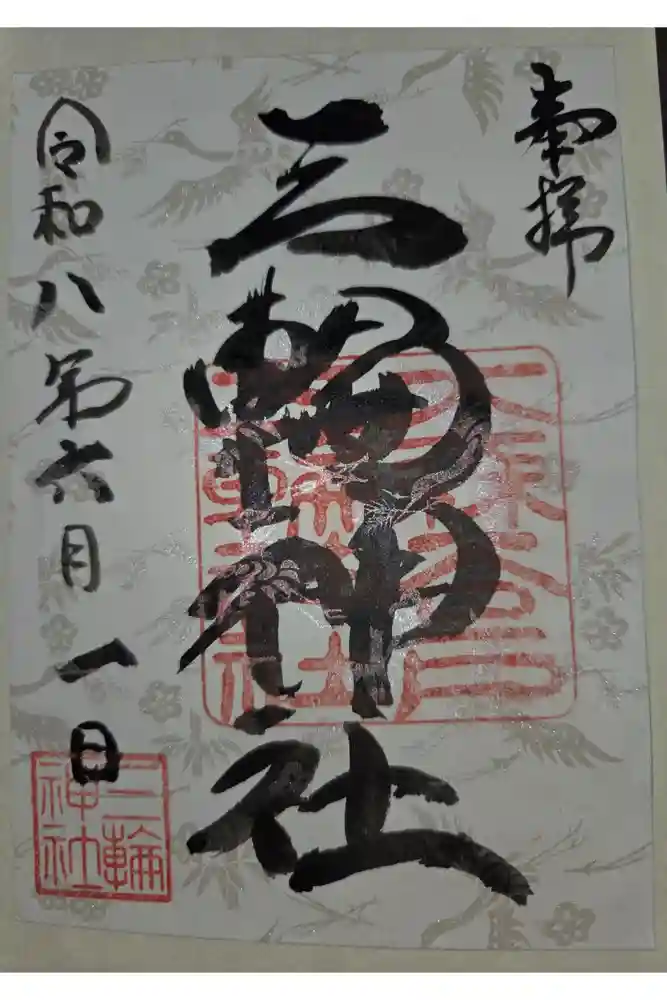 奉拝
三輪神社
令和八年六月一日
三輪神社